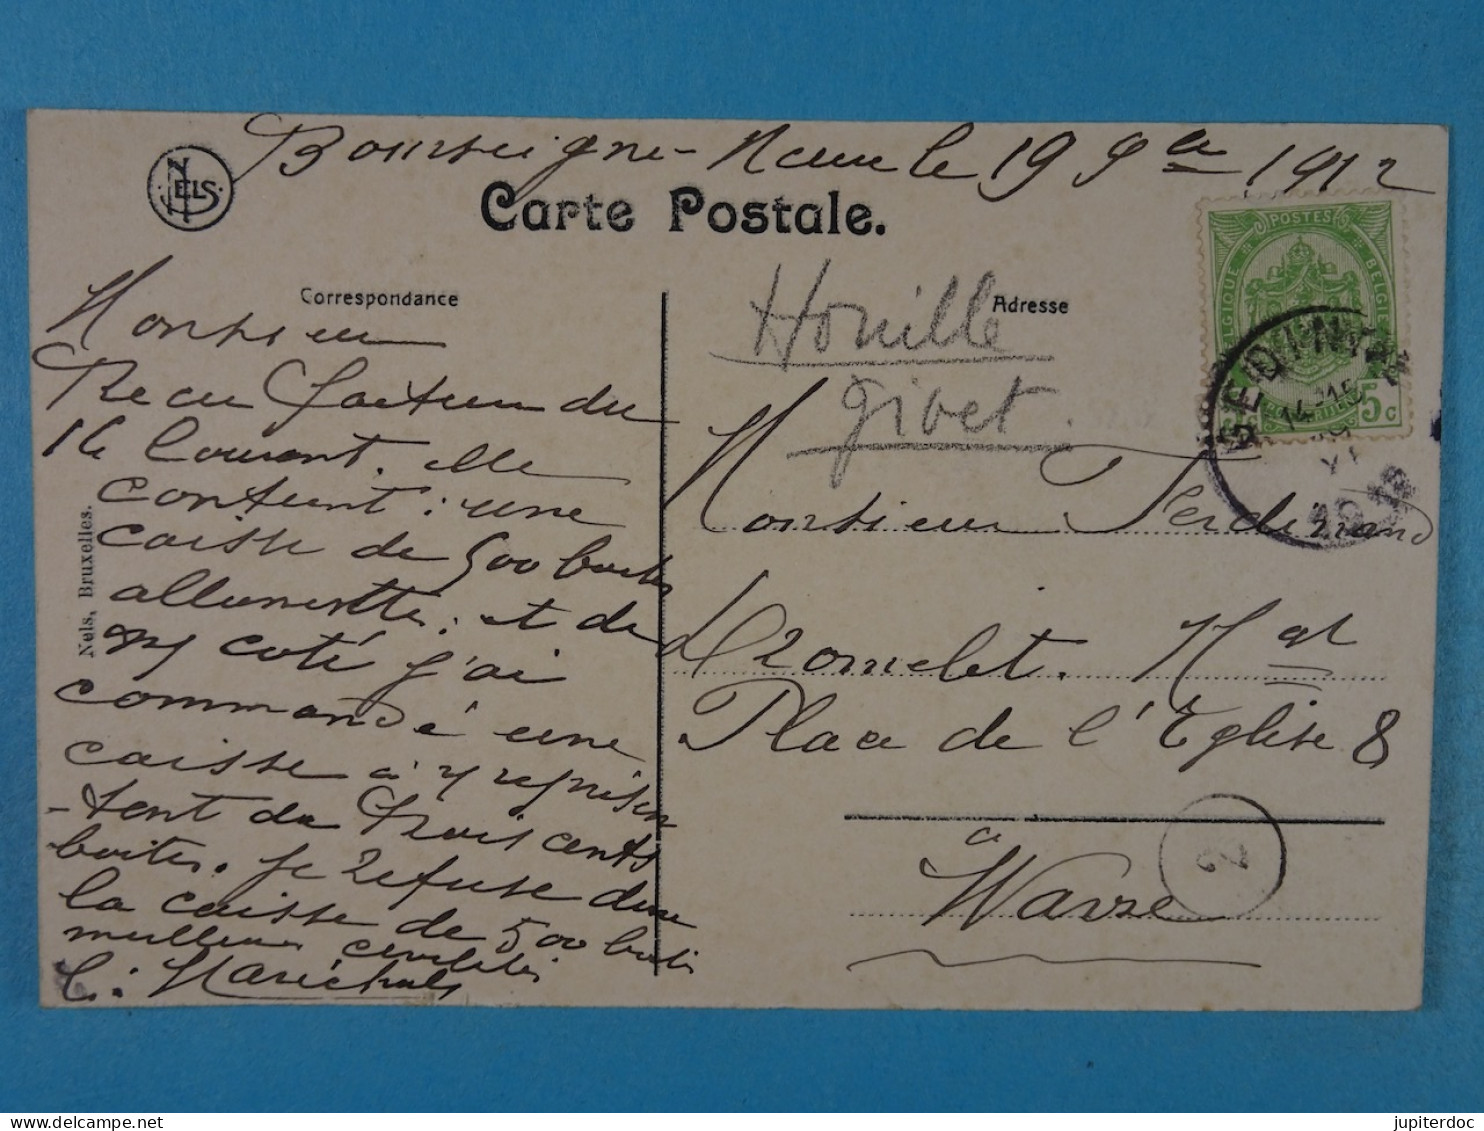 Bourseigne-Neuve le 19 9bre 1912
NELS
Carte Postale.
Correspondance
Adresse
POSTES
BELGIQUE
BELGIE
5c
Houille
Givet.
Monsieur
Recu facture du
16 Courant. elle
contient : une
caisse de 500 boites
allumettes. et de
my coté j'ai
commandé une
caisse
tent de trois cents
boites. Je refuse donc
la caisse de 500 boites
meilleures civilités
C. Maréchal
Nels, Bruxelles.
Monsieur Ferdinand
Place de l'Eglise 8
a
Wavre
2
jupiterdoc